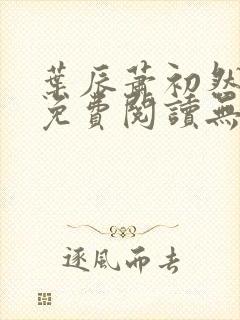 葉辰蕭初然
免費閱讀無
逐風而去